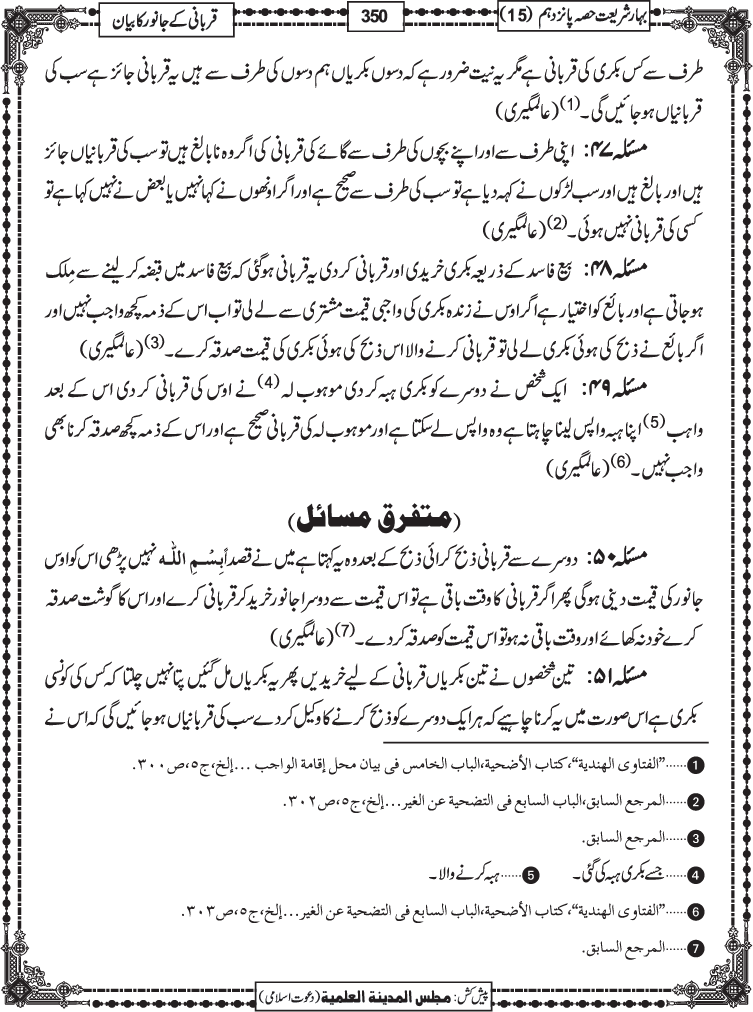 بہارشریعت حصہ پانزدہم (15)
350
قربانی کے جانور کا بیان
طرف سے کس بکری کی قربانی ہے مگر یہ نیت ضرور ہے کہ دسوں بکریاں ہم دسوں کی طرف سے ہیں یہ قربانی جائز ہے سب کی
قربانیاں ہو جائیں گی۔(1) (عالمگیری)
مسئلہ ۴۷: اپنی طرف سے اور اپنے بچوں کی طرف سے گائے کی قربانی کی اگر وہ نابالغ ہیں تو سب کی قربانیاں جائز
ہیں اور بالغ ہیں اور سب لڑکوں نے کہہ دیا ہے تو سب کی طرف سے صحیح ہے اور اگر اونھوں نے کہا نہیں یا بعض نے نہیں کہا ہے تو
کسی کی قربانی نہیں ہوئی۔(2) (عالمگیری)
مسئلہ ۴۸: بیع فاسد کے ذریعہ بکری خریدی اور قربانی کر دی یہ قربانی ہوگئی کہ بیع فاسد میں قبضہ کر لینے سے مِلک
ہو جاتی ہے اور بائع کو اختیار ہے اگر اوس نے زندہ بکری کی واجبی قیمت مشتری سے لے لی تو اب اس کے ذمہ کچھ واجب نہیں اور
اگر بائع نے ذبح کی ہوئی بکری لے لی تو قربانی کرنے والا اس ذبح کی ہوئی بکری کی قیمت صدقہ کرے۔(3) (عالمگیری)
مسئلہ ۴۹: ایک شخص نے دوسرے کو بکری ہبہ کر دی موہوب لہ(4) نے اوس کی قربانی کر دی اس کے بعد
واہب(5) اپنا ہبہ واپس لینا چاہتا ہے وہ واپس لے سکتا ہے اور موہوب لہ کی قربانی صحیح ہے اور اس کے ذمہ کچھ صدقہ کرنا بھی
واجب نہیں۔(6) (عالمگیری)
(متفرق مسائل)
مسئلہ ۵۰: دوسرے سے قربانی ذبح کرائی ذبح کے بعد وہ یہ کہتا ہے میں نے قصداً بِسْمِ اللہ نہیں پڑھی اس کو اوس
جانور کی قیمت دینی ہوگی پھر اگر قربانی کا وقت باقی ہے تو اس قیمت سے دوسرا جانور خرید کر قربانی کرے اور اس کا گوشت صدقہ
کرے خود نہ کھائے اور وقت باقی نہ ہو تو اس قیمت کو صدقہ کر دے۔(7) (عالمگیری)
مسئلہ ۵۱: تین شخصوں نے تین بکریاں قربانی کے لیے خریدیں پھر یہ بکریاں مل گئیں پتا نہیں چلتا کہ کس کی کونسی
بکری ہے اس صورت میں یہ کرنا چاہیے کہ ہر ایک دوسرے کو ذبح کرنے کا وکیل کر دے سب کی قربانیاں ہو جائیں گی کہ اس نے
1 ......"الفتاوى الهندية"، كتاب الأضحية، الباب الخامس فى بيان محل إقامة الواجب ...إلخ، ج٥، ص٣٠٠.
2 ......المرجع السابق، الباب السابع فى التضحية عن الغير...إلخ، ج٥، ص٣٠٢.
3 ......المرجع السابق.
4 ......جسے بکری ہبہ کی گئی۔ 5 ......ہبہ کرنے والا۔
6 ......"الفتاوى الهندية"، كتاب الأضحية، الباب السابع فى التضحية عن الغير...إلخ، ج٥، ص٣٠٣.
7 ......المرجع السابق.
پیش کش: مجلس المدينة العلمية (دعوت اسلامی)